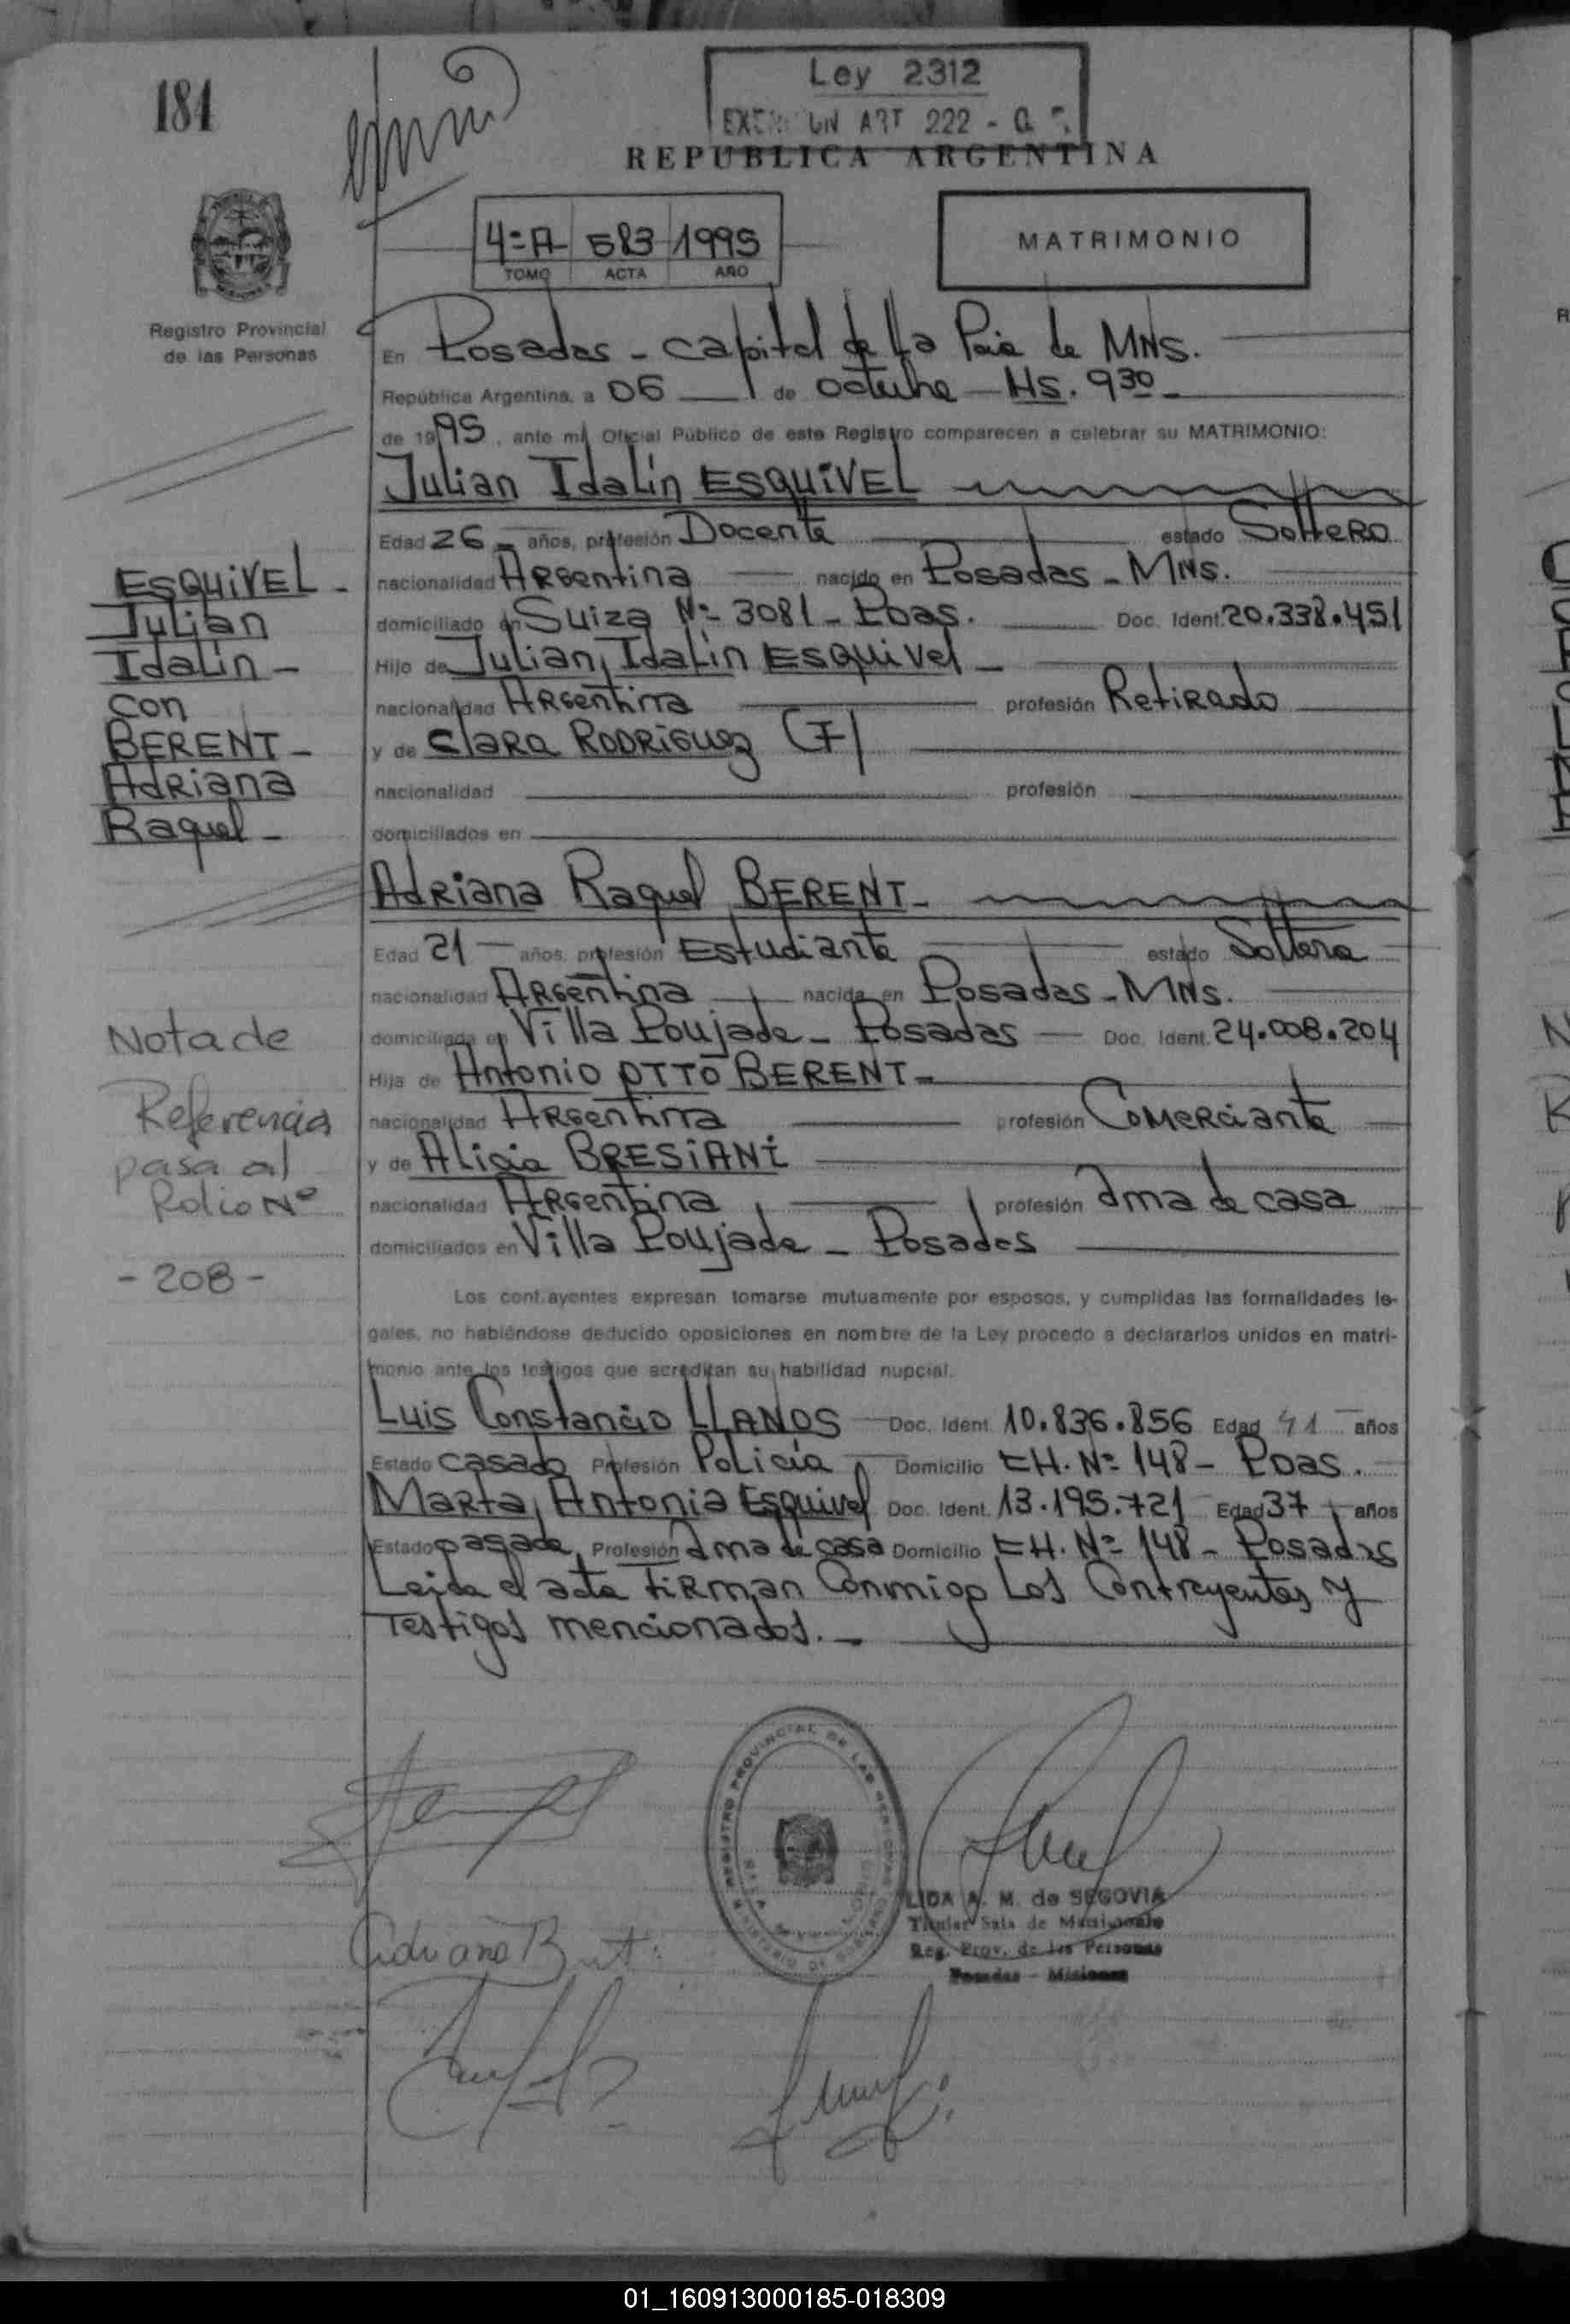 184
Ley 2312
ART 222 -
REPUBLICA ARGENTINA
4ª A 583 1995
TOMO ACTA AÑO
MATRIMONIO
Registro Provincial
de las Personas
En Posadas - Capital de la Pcia de MNS.
República Argentina, a 06 de octubre Hs. 9 30
de 1995, ante mí Oficial Público de este Registro comparecen a celebrar su MATRIMONIO:
Julian Idalin ESQUIVEL
Edad 26 años, profesión Docente estado Soltero
nacionalidad Argentina nacido en Posadas - MNS.
domiciliado en Suiza Nº 3081 - Pdas. Doc. Ident. 20.338.451
Hijo de Julian Idalin Esquivel
nacionalidad Argentina profesión Retirado
y de Clara Rodriguez (F)
nacionalidad profesión
domiciliados en
ESQUIVEL -
Julian
Idalin -
con
BERENT -
Adriana
Raquel -
Adriana Raquel BERENT -
Edad 21 años, profesión Estudiante estado Soltera
nacionalidad Argentina nacida en Posadas - MNS.
domiciliada en Villa Poujade - Posadas Doc. Ident. 24.008.204
Hija de Antonio OTTO BERENT -
nacionalidad Argentina profesión Comerciante
y de Alicia BRESIANI
nacionalidad Argentina profesión Ama de casa
domiciliados en Villa Poujade - Posadas
Nota de
Referencia
pasa al
Folio Nº
- 208 -
Los contrayentes expresan tomarse mutuamente por esposos, y cumplidas las formalidades le-
gales, no habiéndose deducido oposiciones en nombre de la Ley procedo a declararlos unidos en matri-
monio ante los testigos que acreditan su habilidad nupcial.
Luis Constancio LLANOS Doc. Ident. 10.836.856 Edad 41 años
Estado casado Profesión Policía Domicilio CH. Nº 148 - Pdas.
Marta Antonia Esquivel Doc. Ident. 13.195.721 Edad 37 años
Estado casada Profesión Ama de casa Domicilio CH. Nº 148 - Posadas
Leida el acta firman Conmigo los Contrayentes y
Testigos mencionados. -
REGISTRO PROVINCIAL DE LAS PERSONAS
MINISTERIO DE GOBIERNO
LIDA A. M. de SEGOVIA
Titular Sala de Matrimonio
Reg. Prov. de las Personas
Posadas - Misiones
01_160913000185-018309